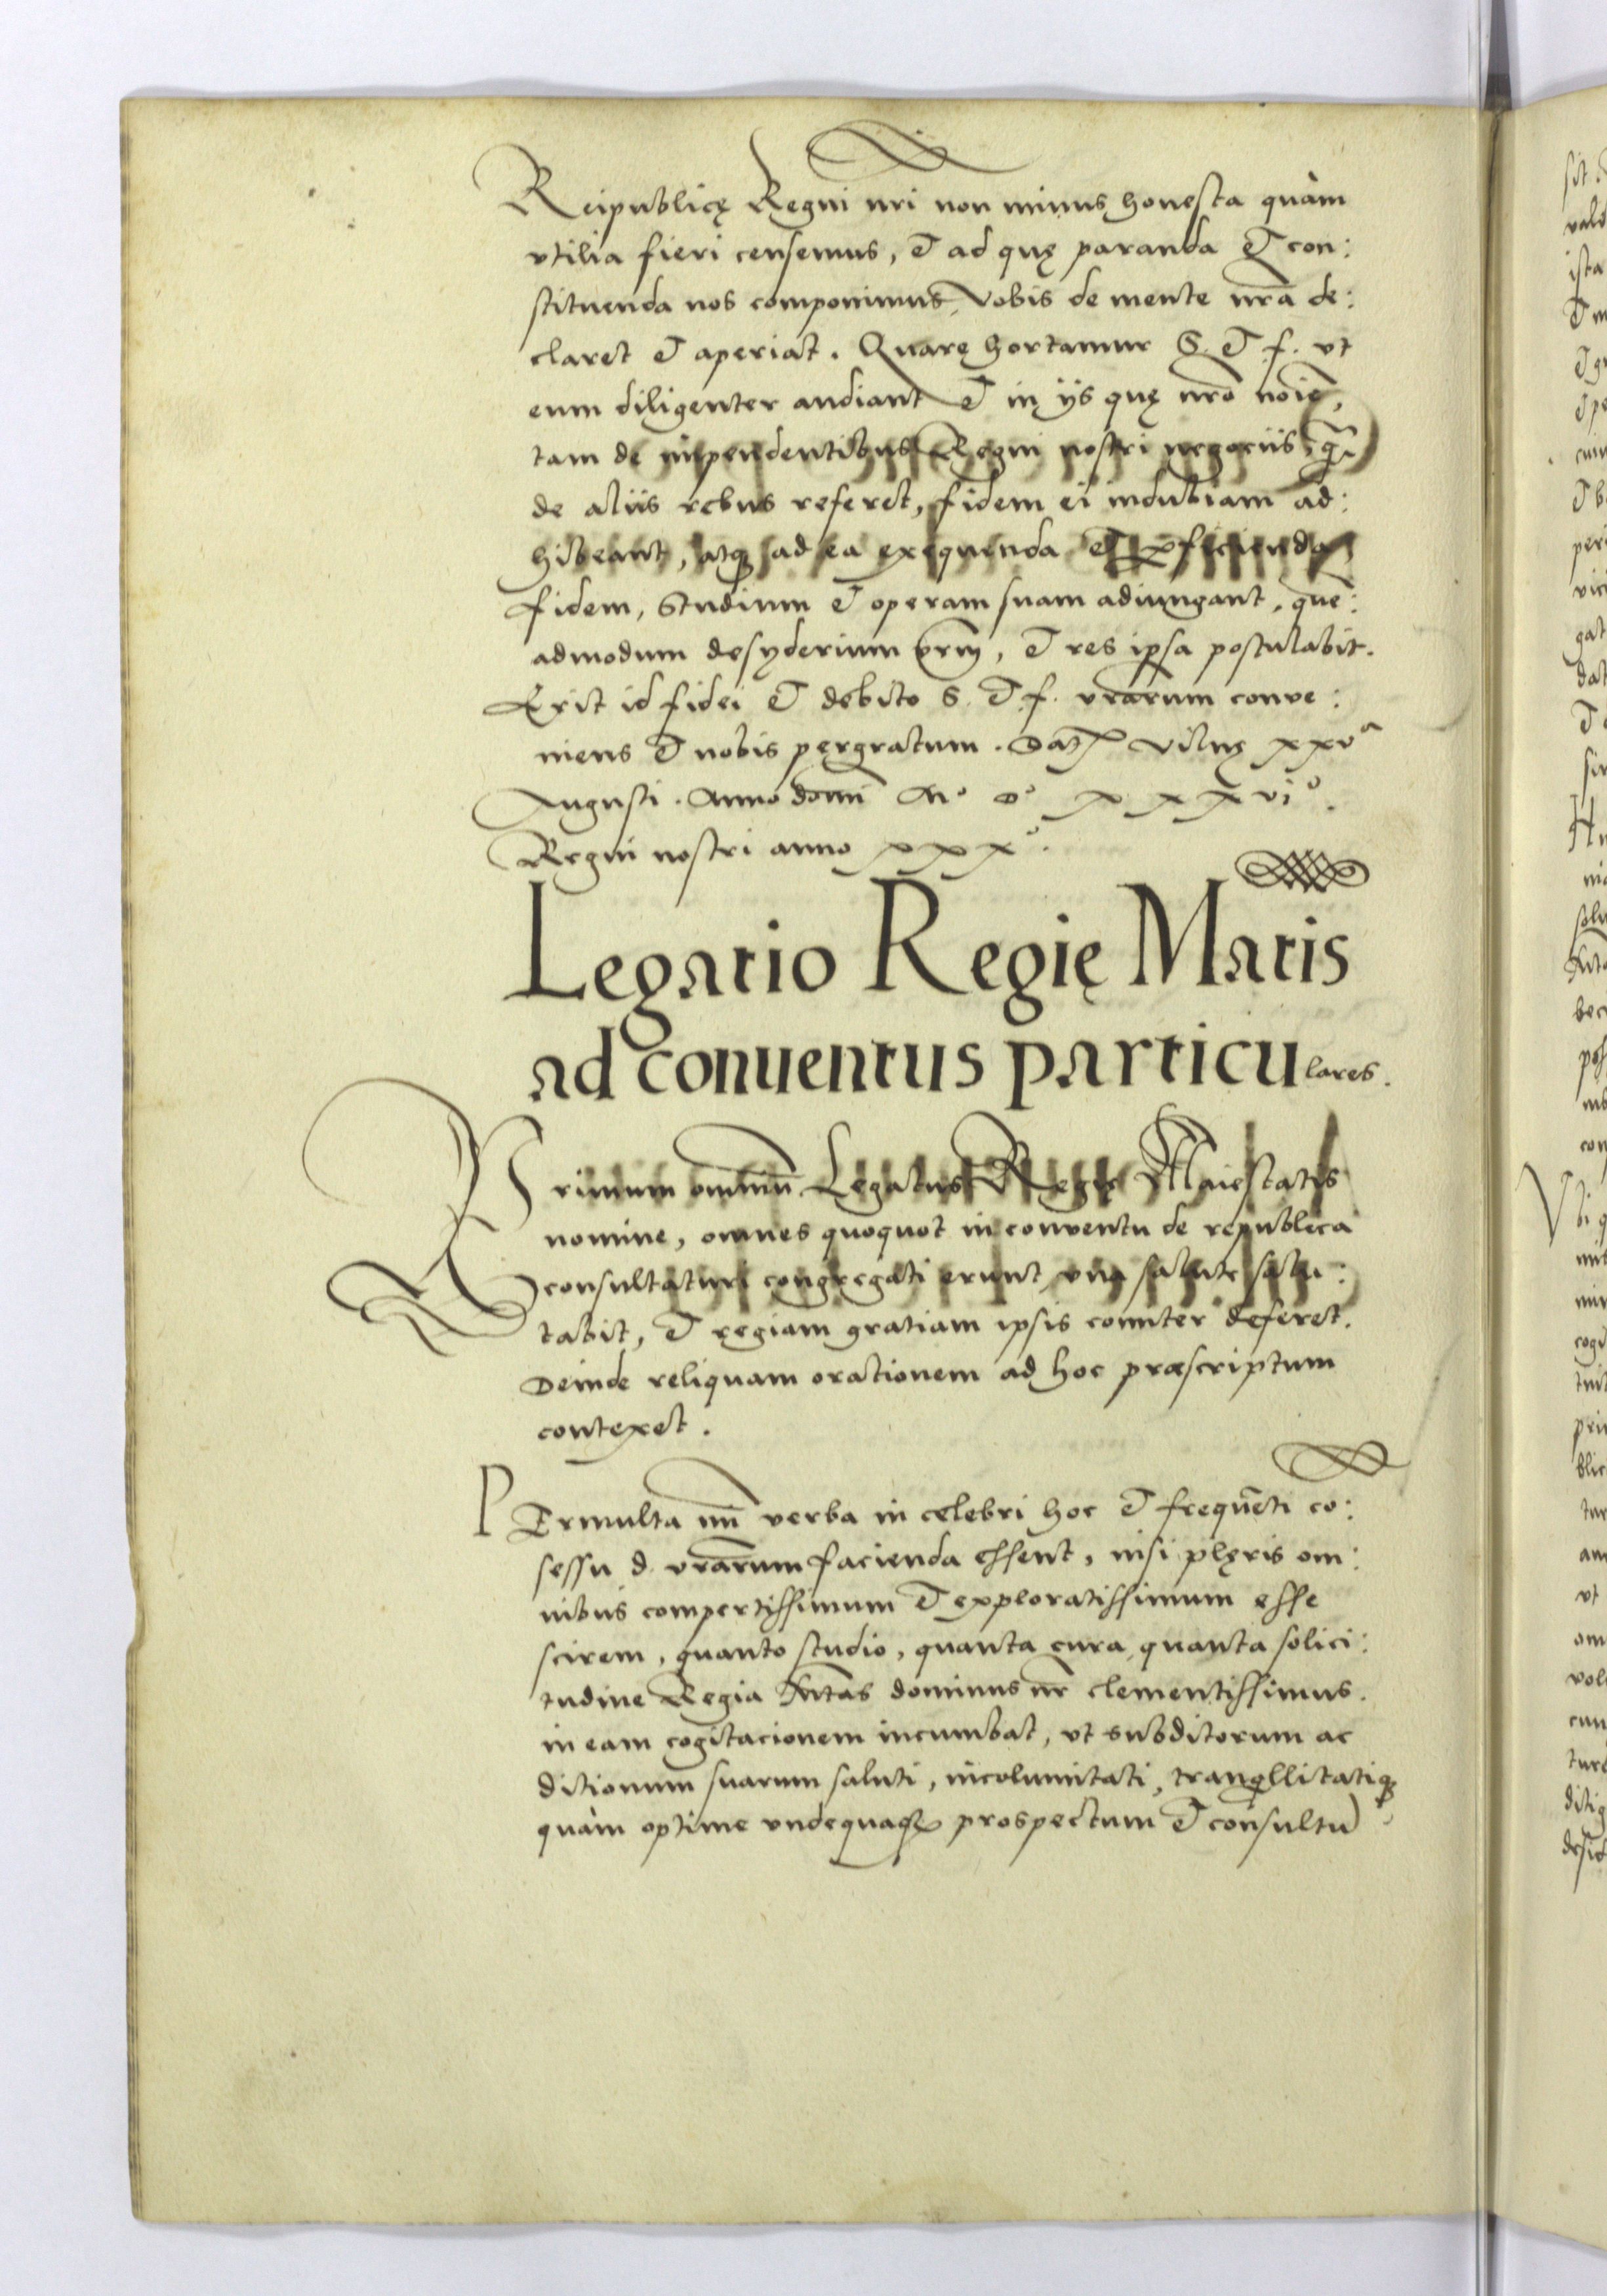 Reipublicę Regni nri non minus honesta quàm
vtilia fieri censemus, & ad quę paranda & con:
stituenda nos componimus, vobis de mente nrã de:
claret & aperiat. Quarę hortamur S. & f. vt
eum diligenter audiant & in ijs quę nrõ noĩe,
tam de impendentibus Regni nostri negociis, q̃
de aliis rebus referet, fidem ei indubiam ad:
hibeant, atq; ad ea exequenda & pficienda
fidem, studium & operam suam adiungant, quẽ:
admodum desyderium nrm, & res ipsa postulabit.
Erit id fidei & debito S. & f. vrarum conve:
niens & nobis pergratum. Dat Vilnę xxv^a
Augusti. Anno domi M° D° xxxvi°.
Regni nostri anno xxx°.
Legatio Regię Matis
ad conuentus particulares.
Primum omniũ Legatus Regię Maiestatis
nomine, omnes quoquot in conventu de republica
consultaturi congregati erunt, vna salute salu:
tabit, & regiam gratiam ipsis comiter deferet.
Deinde reliquam orationem ad hoc præscriptum
contexet.
PErmulta mĩ verba in celebri hoc & frequẽti cõ:
sessu d. vrarum facienda essent, nisi plęris om:
nibus compertissimum & exploratissimum esse
scirem, quanto studio, quanta cura, quanta solici:
tudine Regia Mtas dominus nr clementissimus.
in eam cogitacionem incumbat, vt subditorum ac
ditionum suarum saluti, incolumitati, tranqllitatiq;
quàm optime vndequaq; prospectum & consultũ